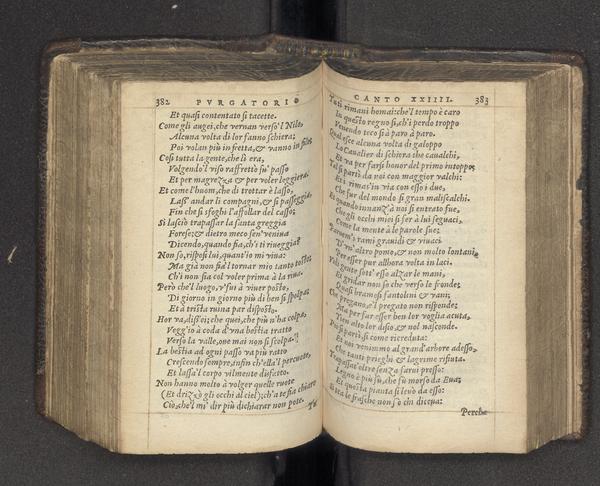 382 PVRGATORIO
Et quasi contentato si tacette.
Come gli augei, che vernan verso'l Nilo,
Alcuna volta di lor fanno schiera;
Poi volan più in fretta, & vanno in filo;
Cosi tutta la gente, che li era,
Volgendo'l viso raffrettò su' passo
Et per magrezza & per voler leggiera.
Et come l'huom, che di trottar è lasso,
Lass' andar li compagni, & si passeggia,
Fin che si sfoghi l'affollar del casso;
Si lasciò trapassar la santa greggia
Forese; & dietro meco sen' veniua
Dicendo, quando fia, ch'i ti riueggia?
Non so, risposi lui, quant'io mi viua:
Ma già non fia'l tornar mio tanto tosto,
Ch'i non sia col voler prima à la riua.
Però che'l luogo, v' fui à viuer posto,
Di giorno in giorno più di ben si spolpa;
Et à trista ruina par disposto.
Hor va, diss'ei; che quei, che più n'ha colpa,
Vegg'io à coda d'vna bestia tratto
Verso la valle, oue mai non si scolpa.
La bestia ad ogni passo va più ratto
Crescendo sempre, infin ch'ella'l percuote,
Et lassa'l corpo vilmente disfatto.
Non hanno molto à volger quelle ruote
(Et drizzò gli occhi al ciel); ch'a te fia chiaro
Ciò, che'l mi' dir più dichiarar non pote.
Tu
CANTO XXIIII. 383
Tu ti rimani homai: che'l tempo è caro
In questo regno si, ch'i perdo troppo
Venendo teco si à paro à paro.
Qual esce alcuna volta di galoppo
Lo Caualier di schiera che caualchi,
Et va per farsi honor del primo intoppo;
Tal si partì da noi con maggior valchi:
Et i rimas'in via con esso i due,
Che fur del mondo si gran maliscalchi.
Et quando innanz'à noi si entrato fue,
Che gli occhi miei si fer à lui seguaci,
Come la mente à le parole sue;
Paruem'i rami grauidi & viuaci
D'vn'altro pomo, & non molto lontani,
Per esser pur allhora volto in laci.
Vidi gente sott' esso alzar le mani,
Et gridar non so che verso le fronde;
Quasi bramosi fantolini & vani;
Che pregano, e'l pregato non risponde;
Ma per far esser ben lor voglia acuta,
Tien alto lor disio, & nol nasconde.
Poi si partì si come ricreduta:
Et noi venimmo al grand'arbore adesso,
Che tanti prieghi & lagrime rifiuta.
Trapassat'oltre senza farui presso:
Legno è più sù, che fù morso da Eua;
Et questa pianta si leuò da esso:
Si tra le frasche non so chi diceua:
Perche